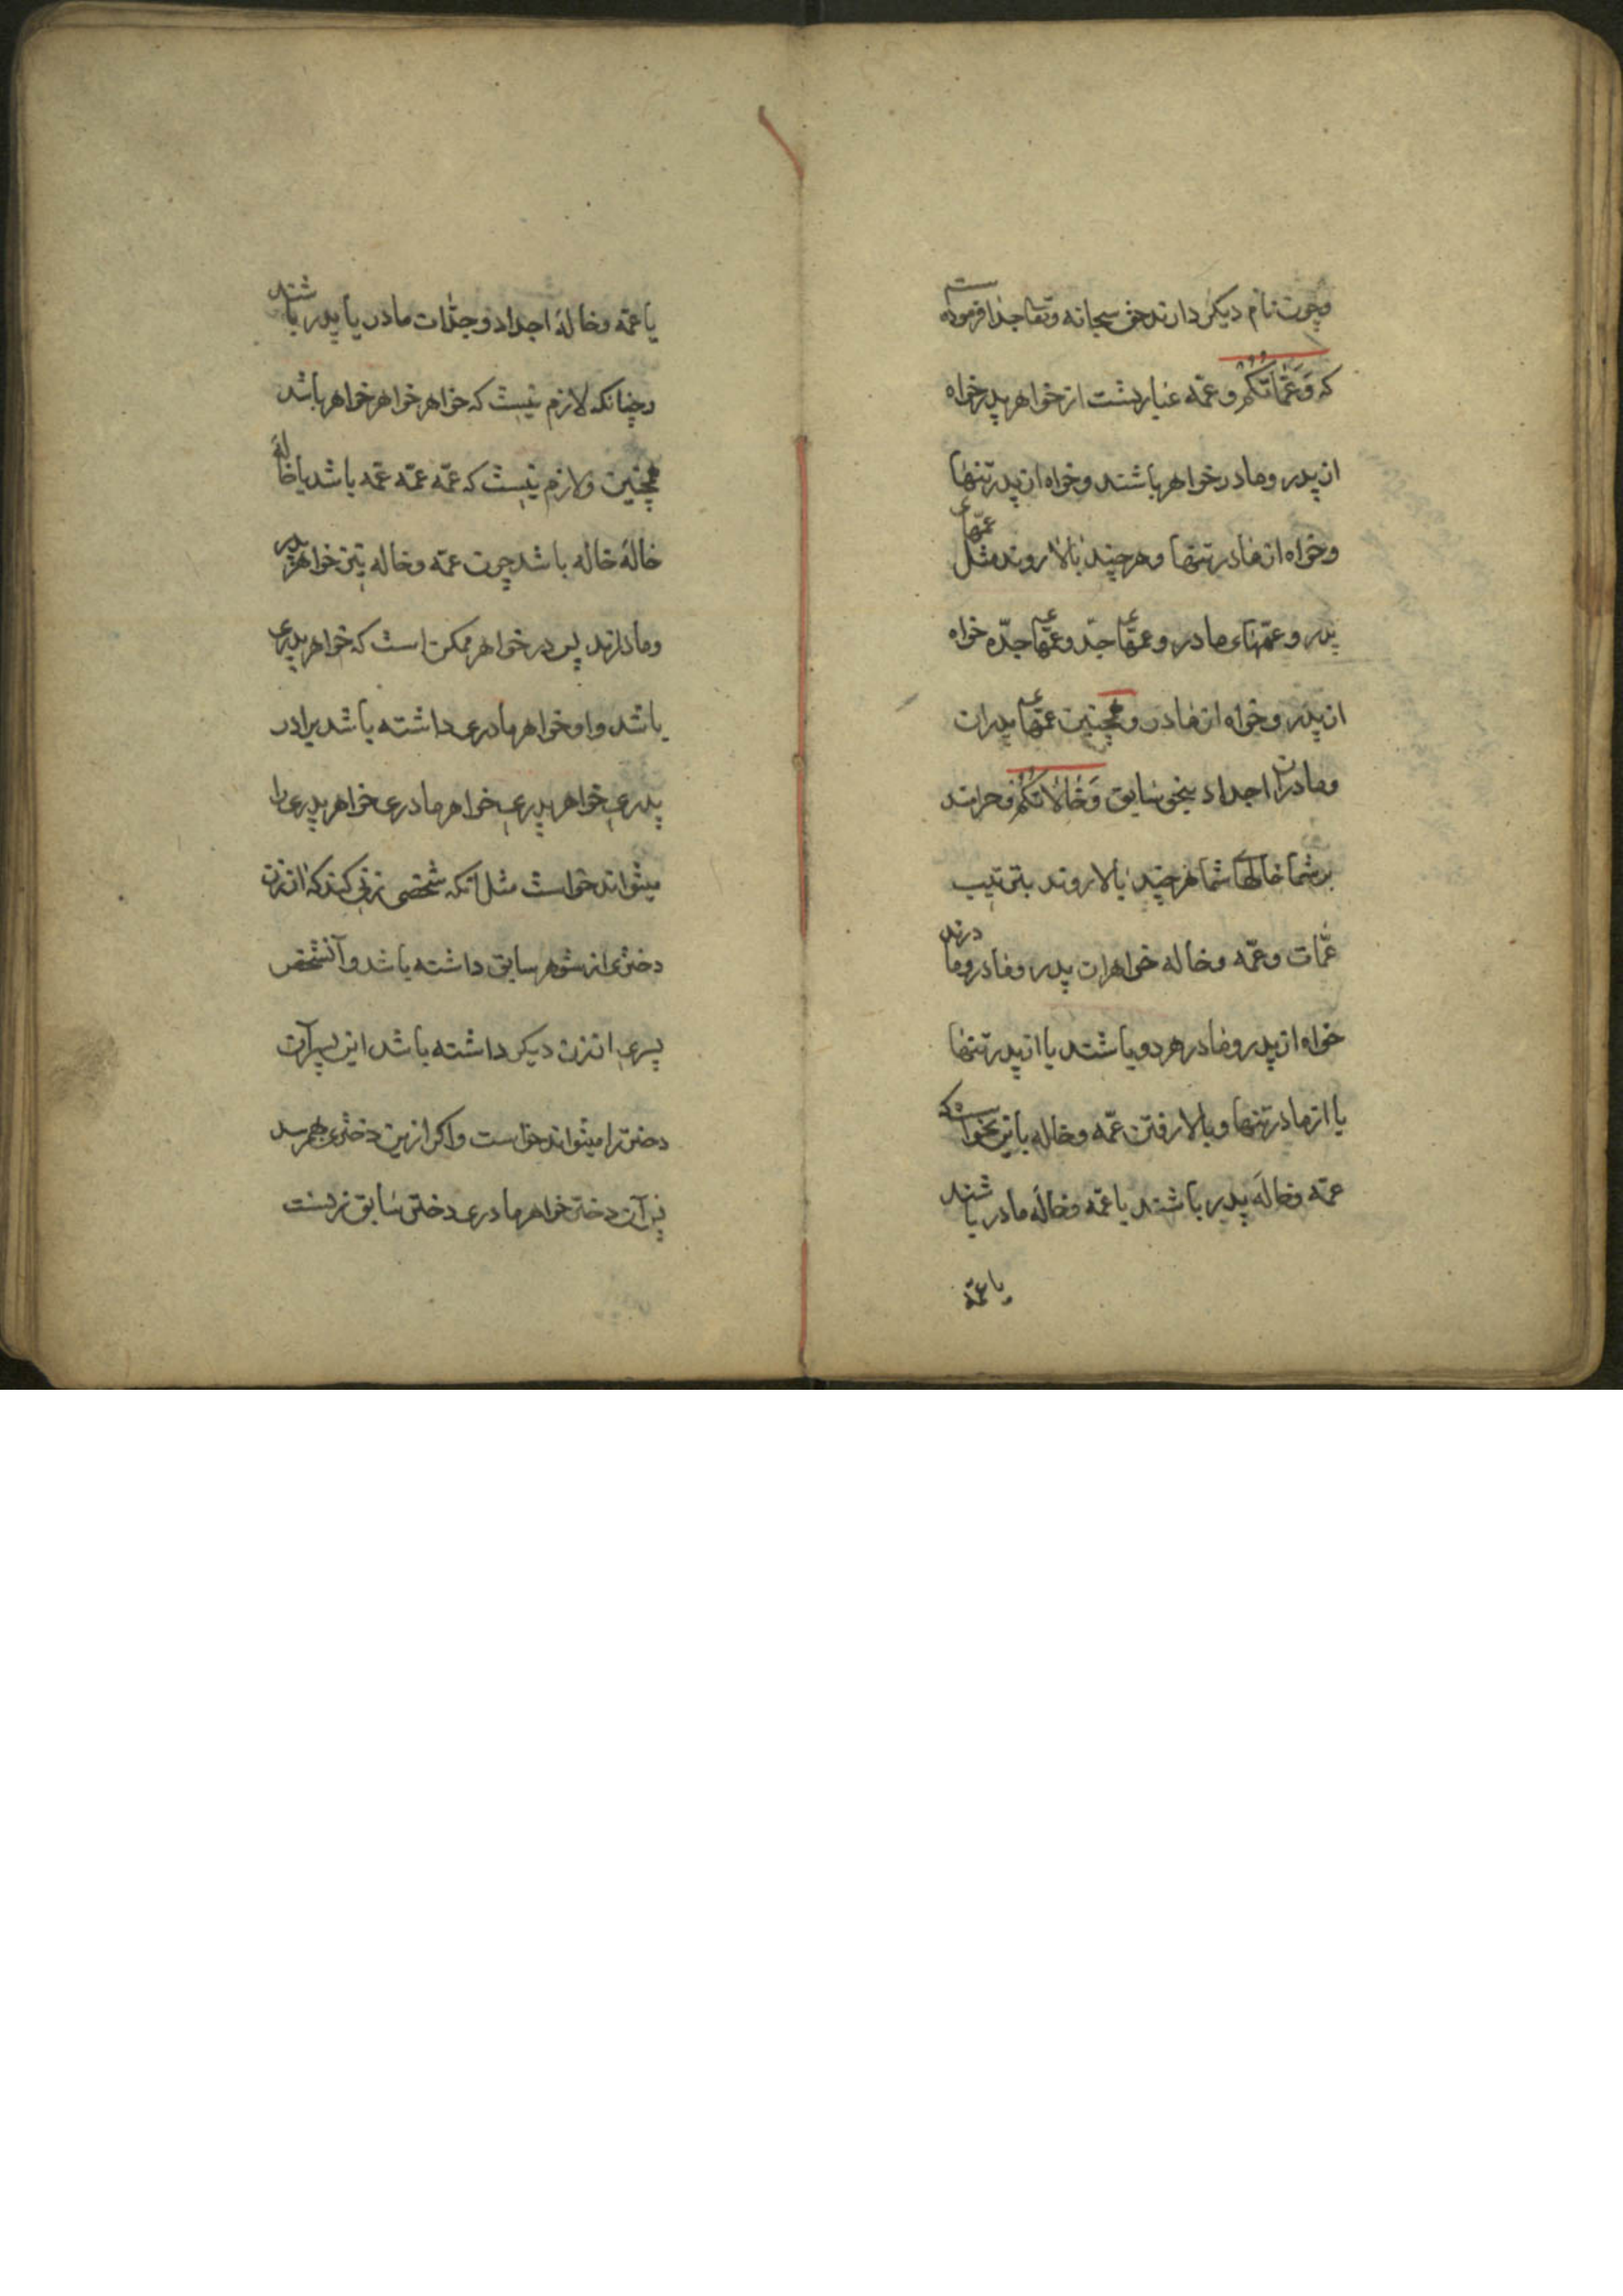 وچون نام دیکر دارند حق سبحانه وتعا جدا فرموده است
که وَعَمّاتُکُم و عمّه عبارتست از خواهر پدر خواه
از پدر و مادر خواهر باشند و خواه از پدر تنها
و خواه از مادر تنها و هر چند بالا روند مثل عمّهای
پدر و عمّهاء مادر و عمّهای جدّ و عمّهای جدّه خواه
از پدر و خواه از مادر و همچنین عمّهای پدران
و مادران اجداد بنحو سابق وَخالاتُکُم و حرامند
بر شما خالهای شما هر چند بالا روند بترتیب
عمّات و عمّه و خاله خواهران پدر و مادروما درند
خواه از پدر و مادر هر دو باشند یا از پدر تنها
یا از مادر تنها و بالا رفتن عمّه و خاله باین نحو است که
عمّه و خالهٔ پدر باشند یا عمّه و خالهٔ مادر باشند
یا عمّه
یا عمّه و خالهٔ اجداد و جدّات مادر یا پدر باشند
و چنانکه لازم نیست که خواهر خواهر خواهر باشد
همچنین و لازم نیست که عمّه عمّه عمّه باشد یا خالهٔ
خالهٔ خاله باشد چون عمّه و خاله بتین خواهر پدر
و مادرند پس در خواهر ممکن است که خواهر پدری
باشد و او خواهر مادری داشته باشد برادر
پدری خواهر پدری خواهر مادری خواهر پدری را
میتواند خواست مثل آنکه شخصی زنی کند که آن زن
دختری از شوهر سابق داشته باشد و آنشخص
پسری از زن دیکر داشته باشد این پسر آن
دختر را میتواند خواست و اکر ازین دختری بهم رسد
پس آن دختر خواهر مادری دختر سابق زنست